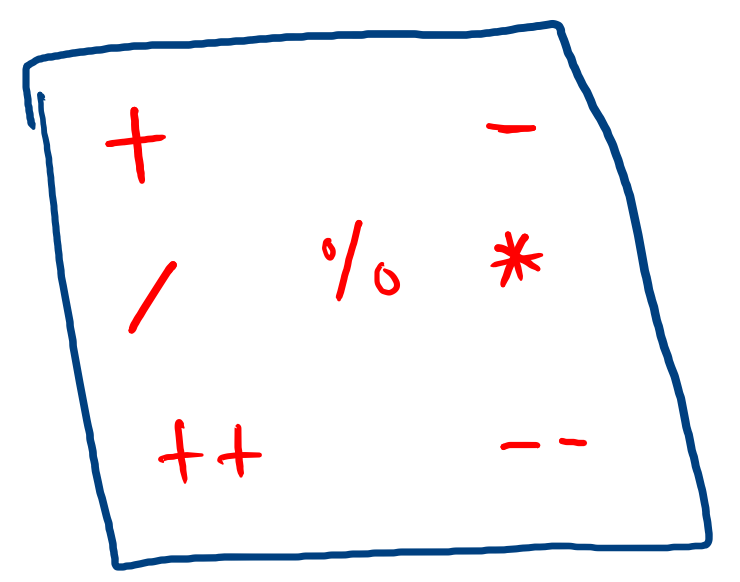 + -
/ % *
++ --